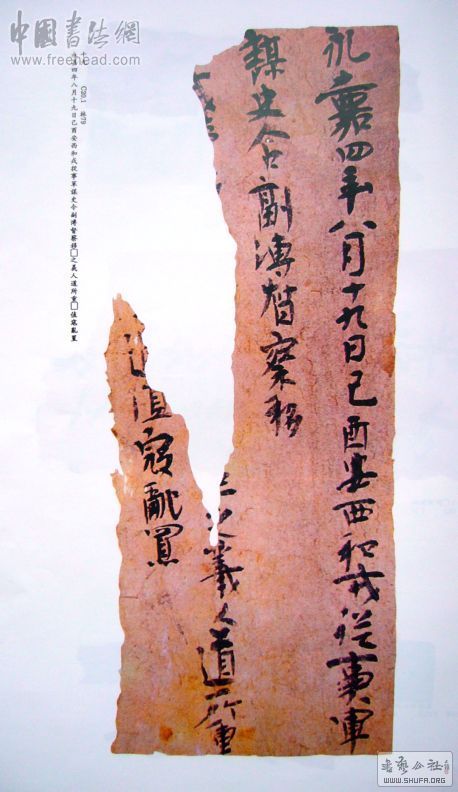 永嘉四年八月十九日己酉安西和戎從事軍
謀史令副溥督察移
之義人道所重
值寇亂罣
中國書法網
www.freehead.com
十二 C20.1 林79
永嘉四年八月十九日己酉安西和戎從事軍謀史令副溥督察移□之義人道所重□值寇亂罣
書藝公社
www.SHUFA.ORG